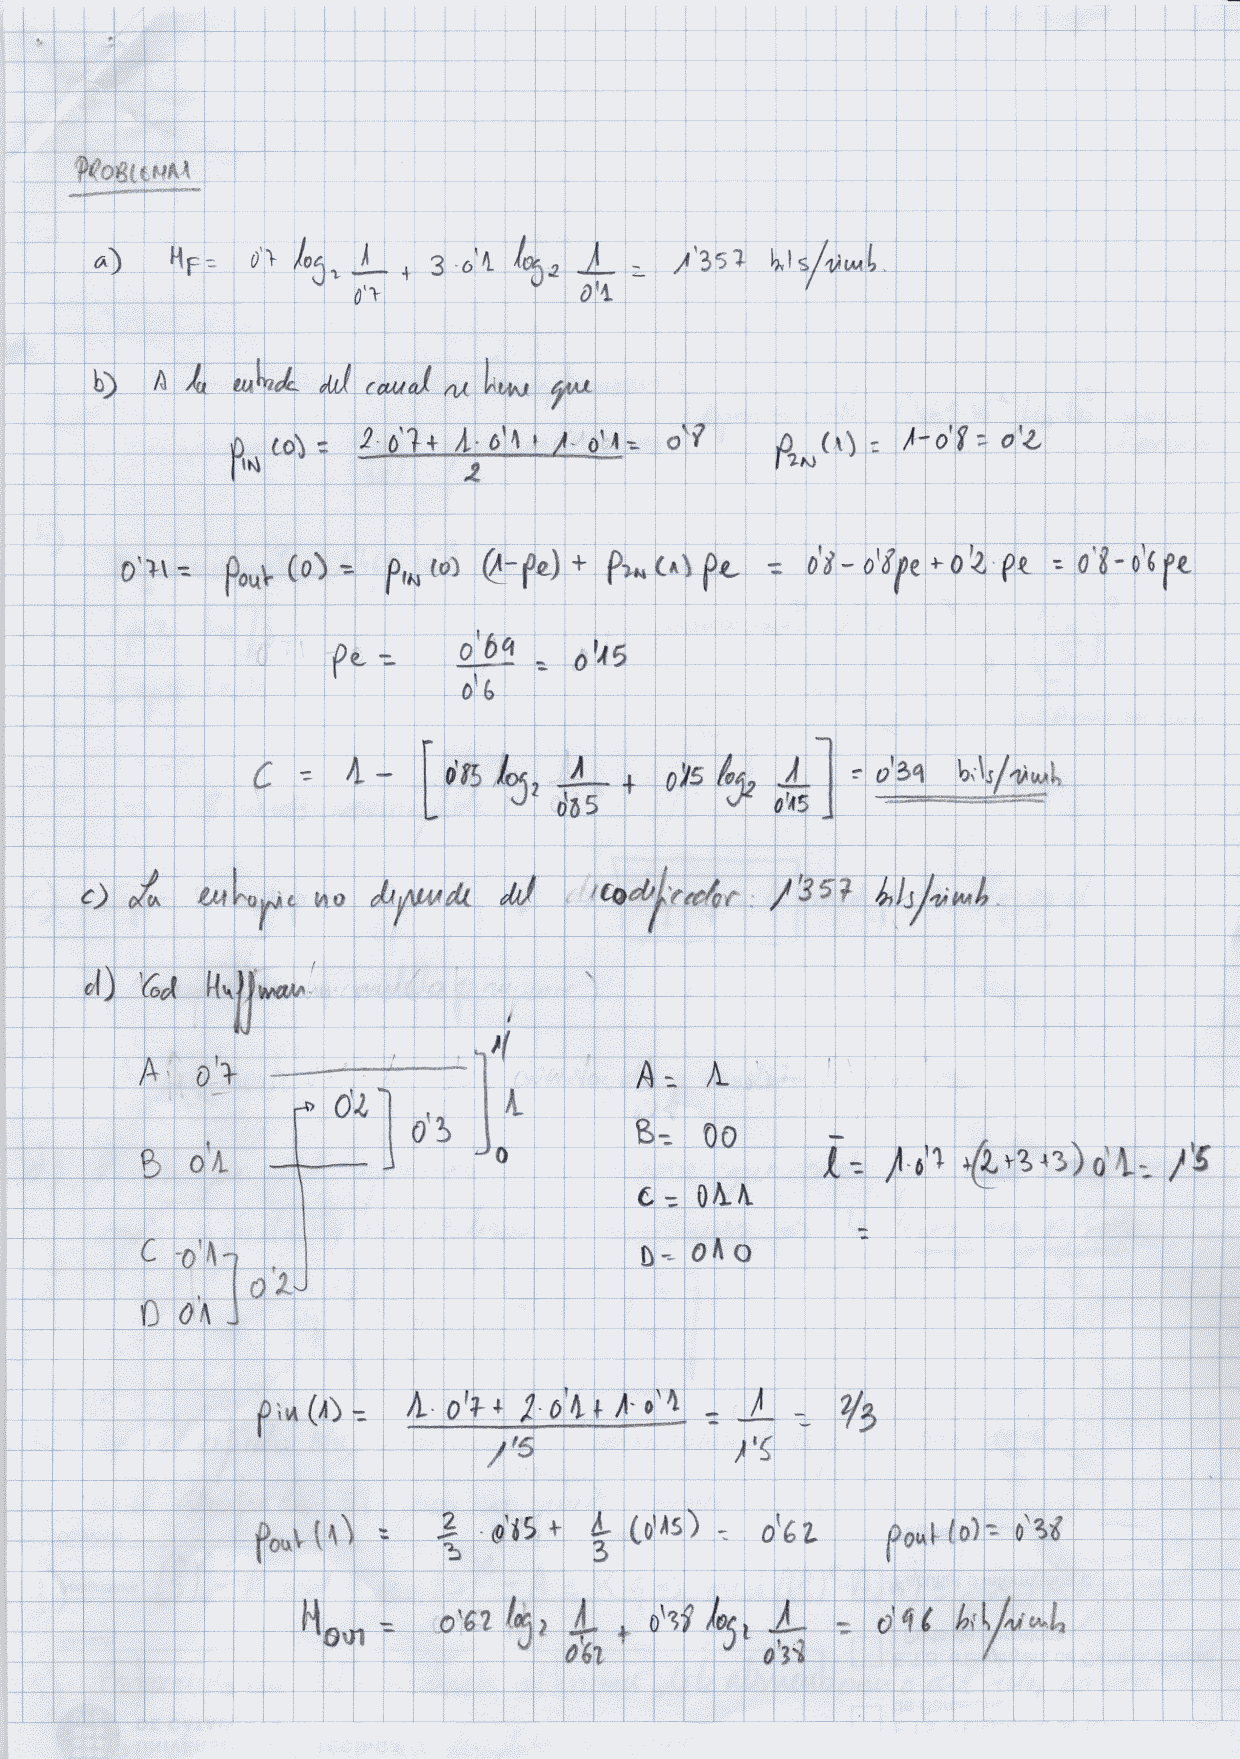 PROBLEMA 1
a) H_F = 0'7 log₂ 1/0'7 + 3·0'1 log₂ 1/0'1 = 1'357 bits/simb.
b) A la entrada del canal se tiene que
p_IN(0) = (2·0'7 + 1·0'1 + 1·0'1)/2 = 0'8 p_IN(1) = 1-0'8 = 0'2
0'71 = p_out(0) = p_IN(0) (1-pe) + p_IN(1) pe = 0'8 - 0'8pe + 0'2·pe = 0'8 - 0'6pe
pe = 0'09/0'6 = 0'15
C = 1 - [0'85 log₂ 1/0'85 + 0'15 log₂ 1/0'15] = 0'39 bits/simb
c) La entropia no depende del codificador: 1'357 bits/simb.
d) Cod Huffman
A 0'7
1
A = 1
0'2
0'3
1
B 0'1
0
B = 00
l̄ = 1·0'7 + (2+3+3) 0'1 = 1'5
C = 011
=
C 0'1
0'2
D = 010
D 0'1
pin(1) = (1·0'7 + 2·0'1 + 1·0'1)/1'5 = 1/1'5 = 2/3
pout(1) = 2/3 · 0'85 + 1/3 (0'15) = 0'62 pout(0) = 0'38
H_OUT = 0'62 log₂ 1/0'62 + 0'38 log₂ 1/0'38 = 0'96 bits/simb